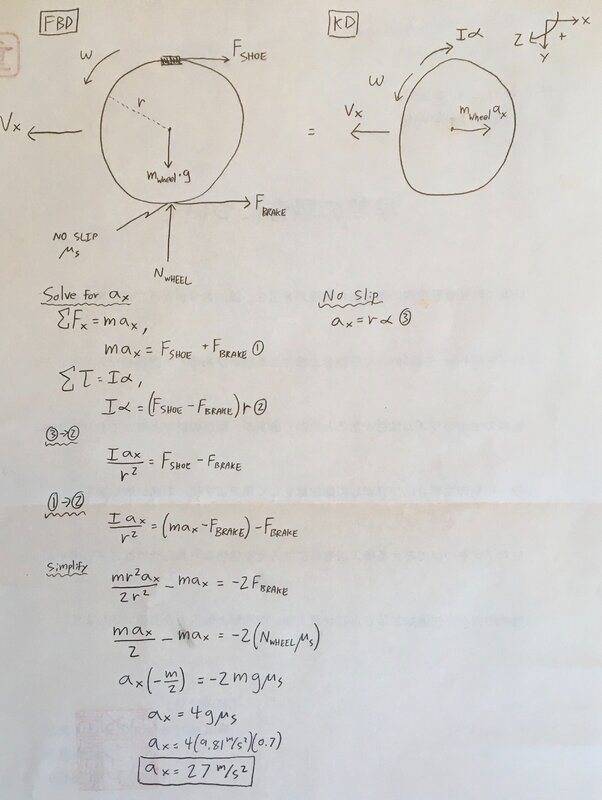 FBD
KD
ω
F SHOE
Iα
x
z +
y
r
ω
Vx
=
Vx
m wheel ax
m wheel · g
F BRAKE
NO SLIP
μs
N WHEEL
Solve for ax
ΣFx = max,
max = F SHOE + F BRAKE ①
Στ = Iα,
Iα = (F SHOE - F BRAKE) r ②
No Slip
ax = rα ③
③→② Iax/r² = F SHOE - F BRAKE
①→② Iax/r² = (max - F BRAKE) - F BRAKE
Simplify mr²ax/2r² - max = -2F BRAKE
max/2 - max = -2(N WHEEL μs)
ax(-m/2) = -2mgμs
ax = 4gμs
ax = 4(9.81 m/s²)(0.7)
ax = 27 m/s²